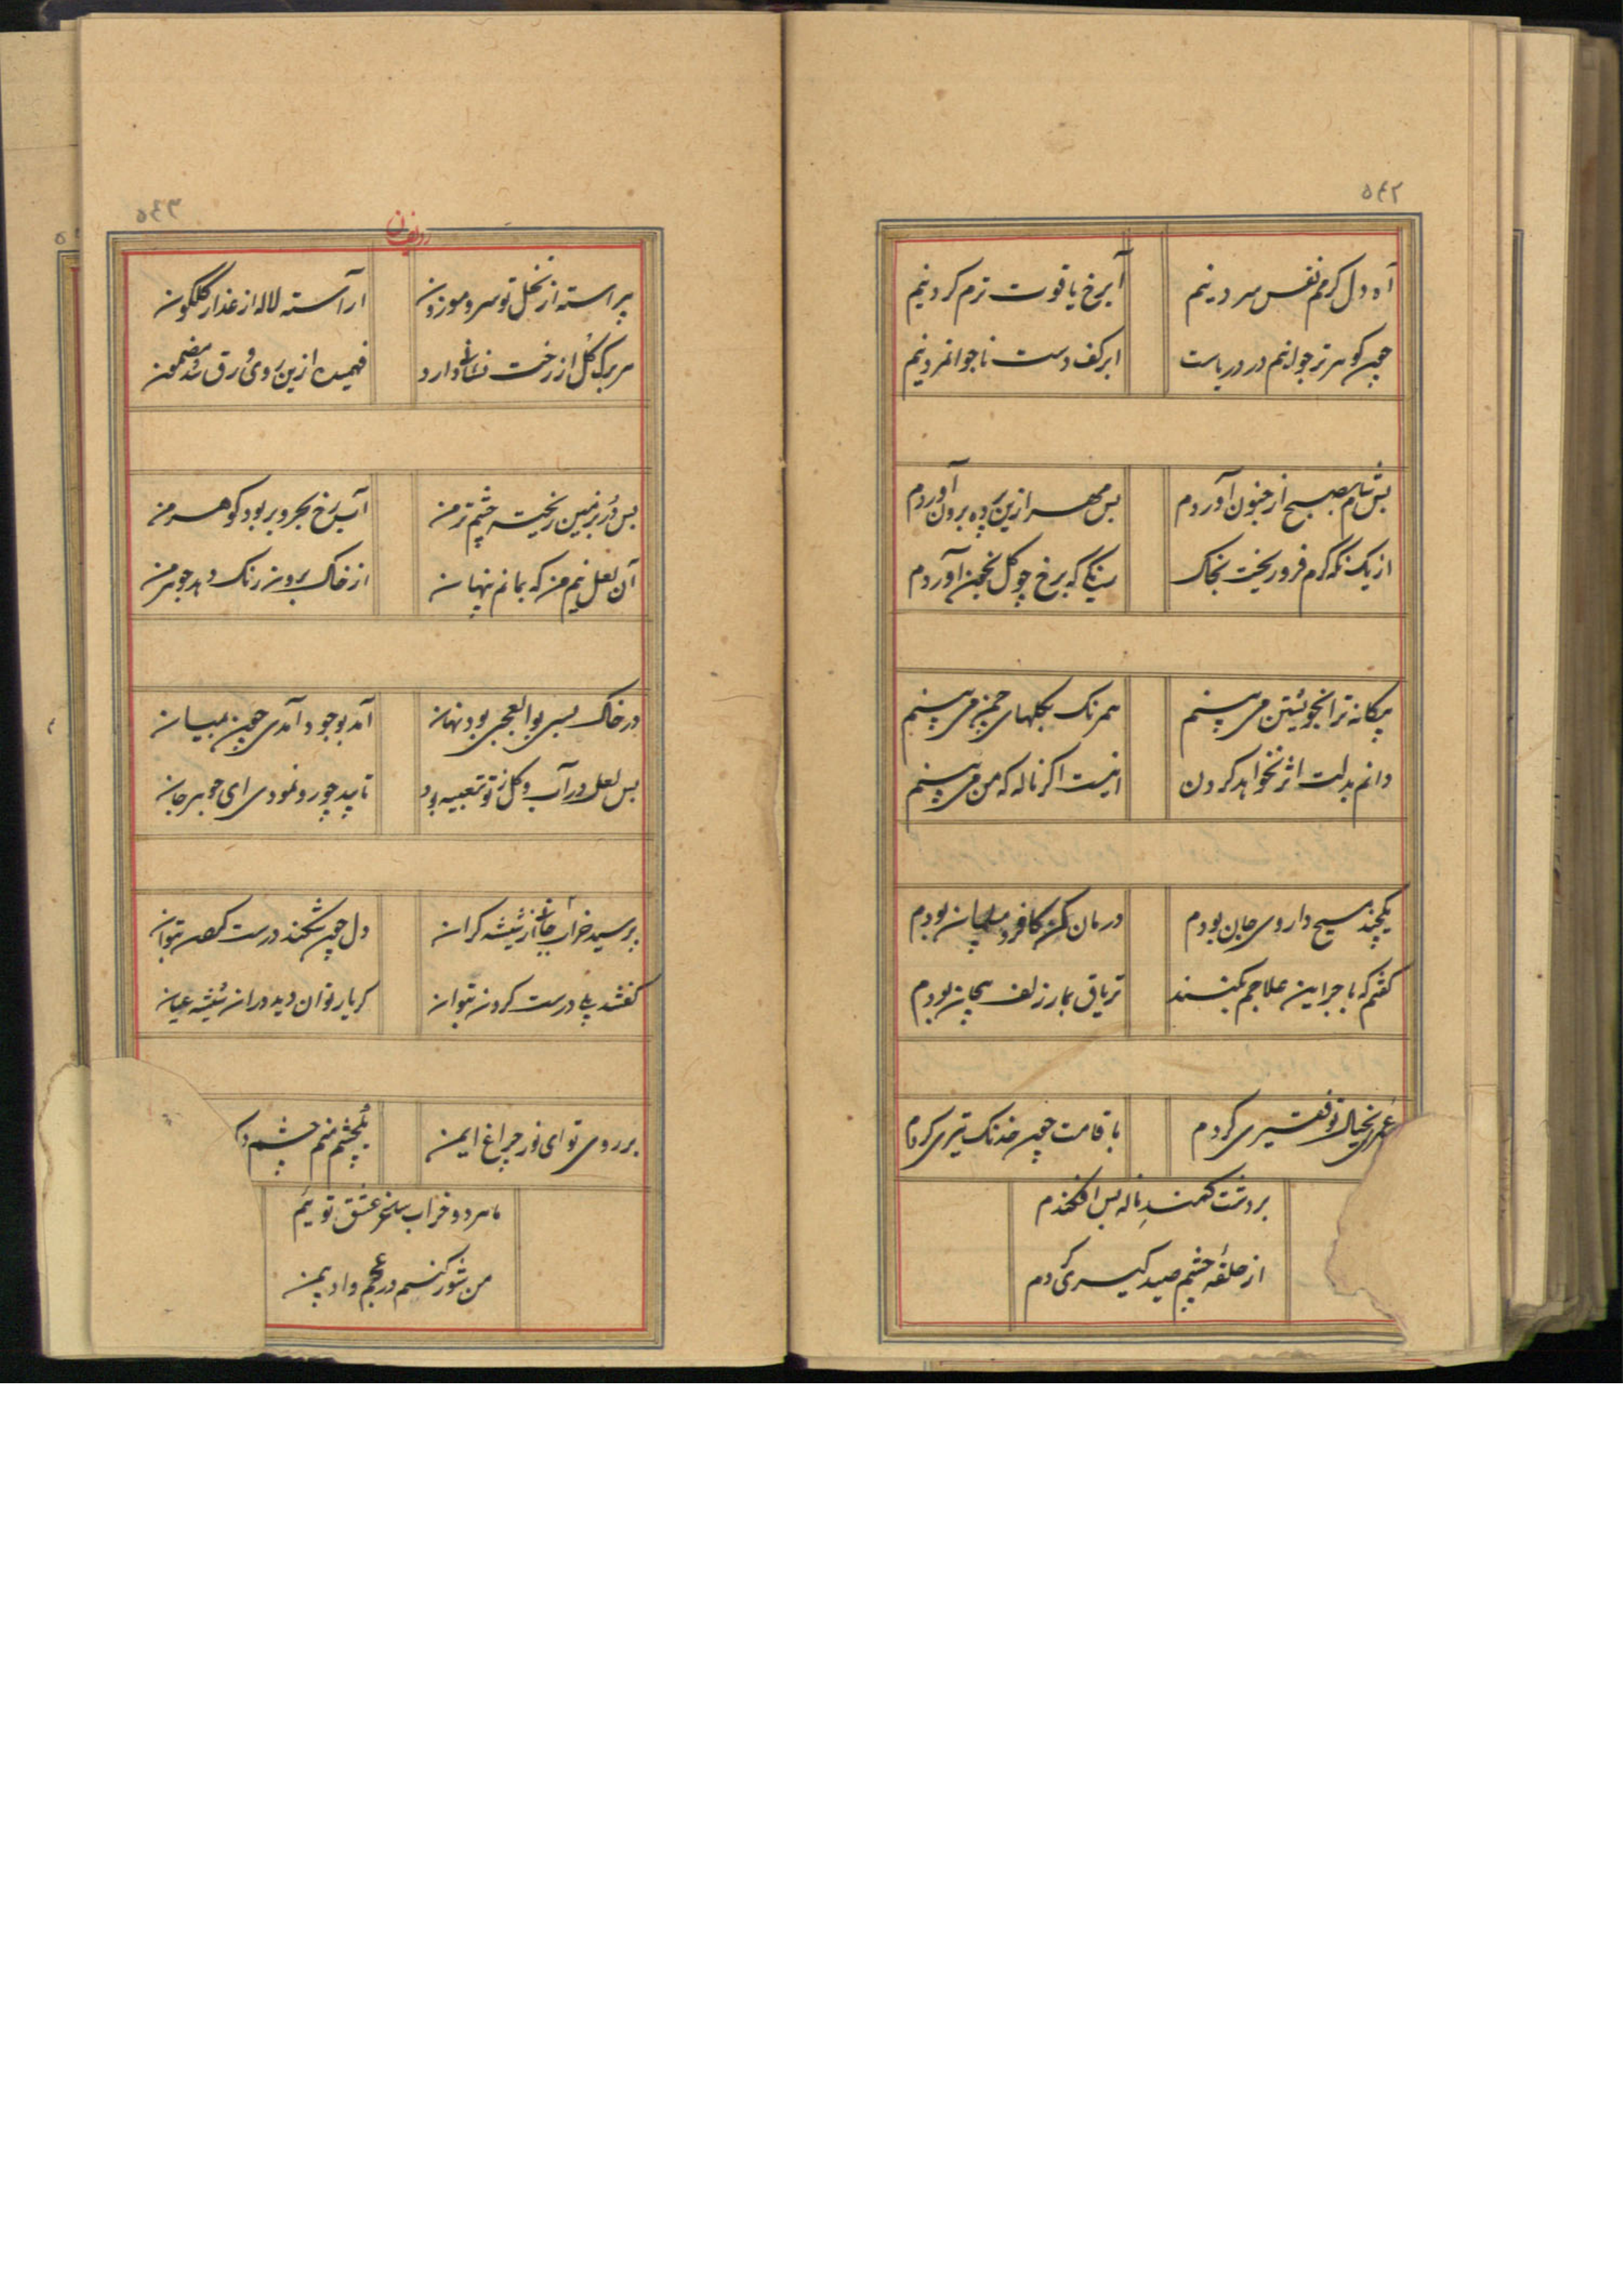 ٥٤٢
آه دل کرمم نفس سر دینم
آبرخ یاقوت ترم کردینم
چون کوهر تر جوانیم در دریاست
ابر کف دست ناجوانمردینم
بس شام بصبح از جنون آوردم
بس مهر ازین پرده برون آوردم
از یک نکه کرم فرو ریخت بخاک
رنگی که برخ چو کل بخون آوردم
بیکانه ترا بخویشتن می بینم
همرنک بکلهای چمن می بینم
دانم بدلت اثر نخواهد کردن
اینست اکر ناله که من می بینم
یکچند مسیح داروی جان بودم
درمان کن کافر و مسلمان بودم
کفتم که باجر این علاجم بکنند
تریاق بمار زلف بیجان بودم
عمری بخیال تو فقیری کردم
با قامت چون خدنک تیری کردم
بر دشت کمند ناله بس افکندم
از حلقه چشم صید کیری کردم
٥٤٣
ردیف ن
پیراسته از نخل تو سرو موزون
آراسته لاله از عذار کلکون
هر برک کل از رخت نشانی دارد
فهمیده ازین روی ورق شد مضمون
بس در بزمین ریخته چشم تر من
آب رخ بحر و بر بود کوهر من
آن لعل نیم من که بمانم پنهان
از خاک برون رنک دهد جوهر من
در خاک بسی بو العجبی بود نهان
آمد بوجود آمدی چون بمیان
بس لعل در آب و کل تو تعبیه بود
تا پید چو رو نمودی ای جوهر جان
پرسید خرابی از شیشه کران
دل چون شکند درست کردن بتوان
کفتند بلی درست کردن بتوان
کر یار توان دید در ان شیشه عیان
بر روی تو ای نور چراغ ایمن
یکچشم منم چشم
ما هر دو خراب ساغر عشق توییم
من شور کنم در عجم و او بیمن